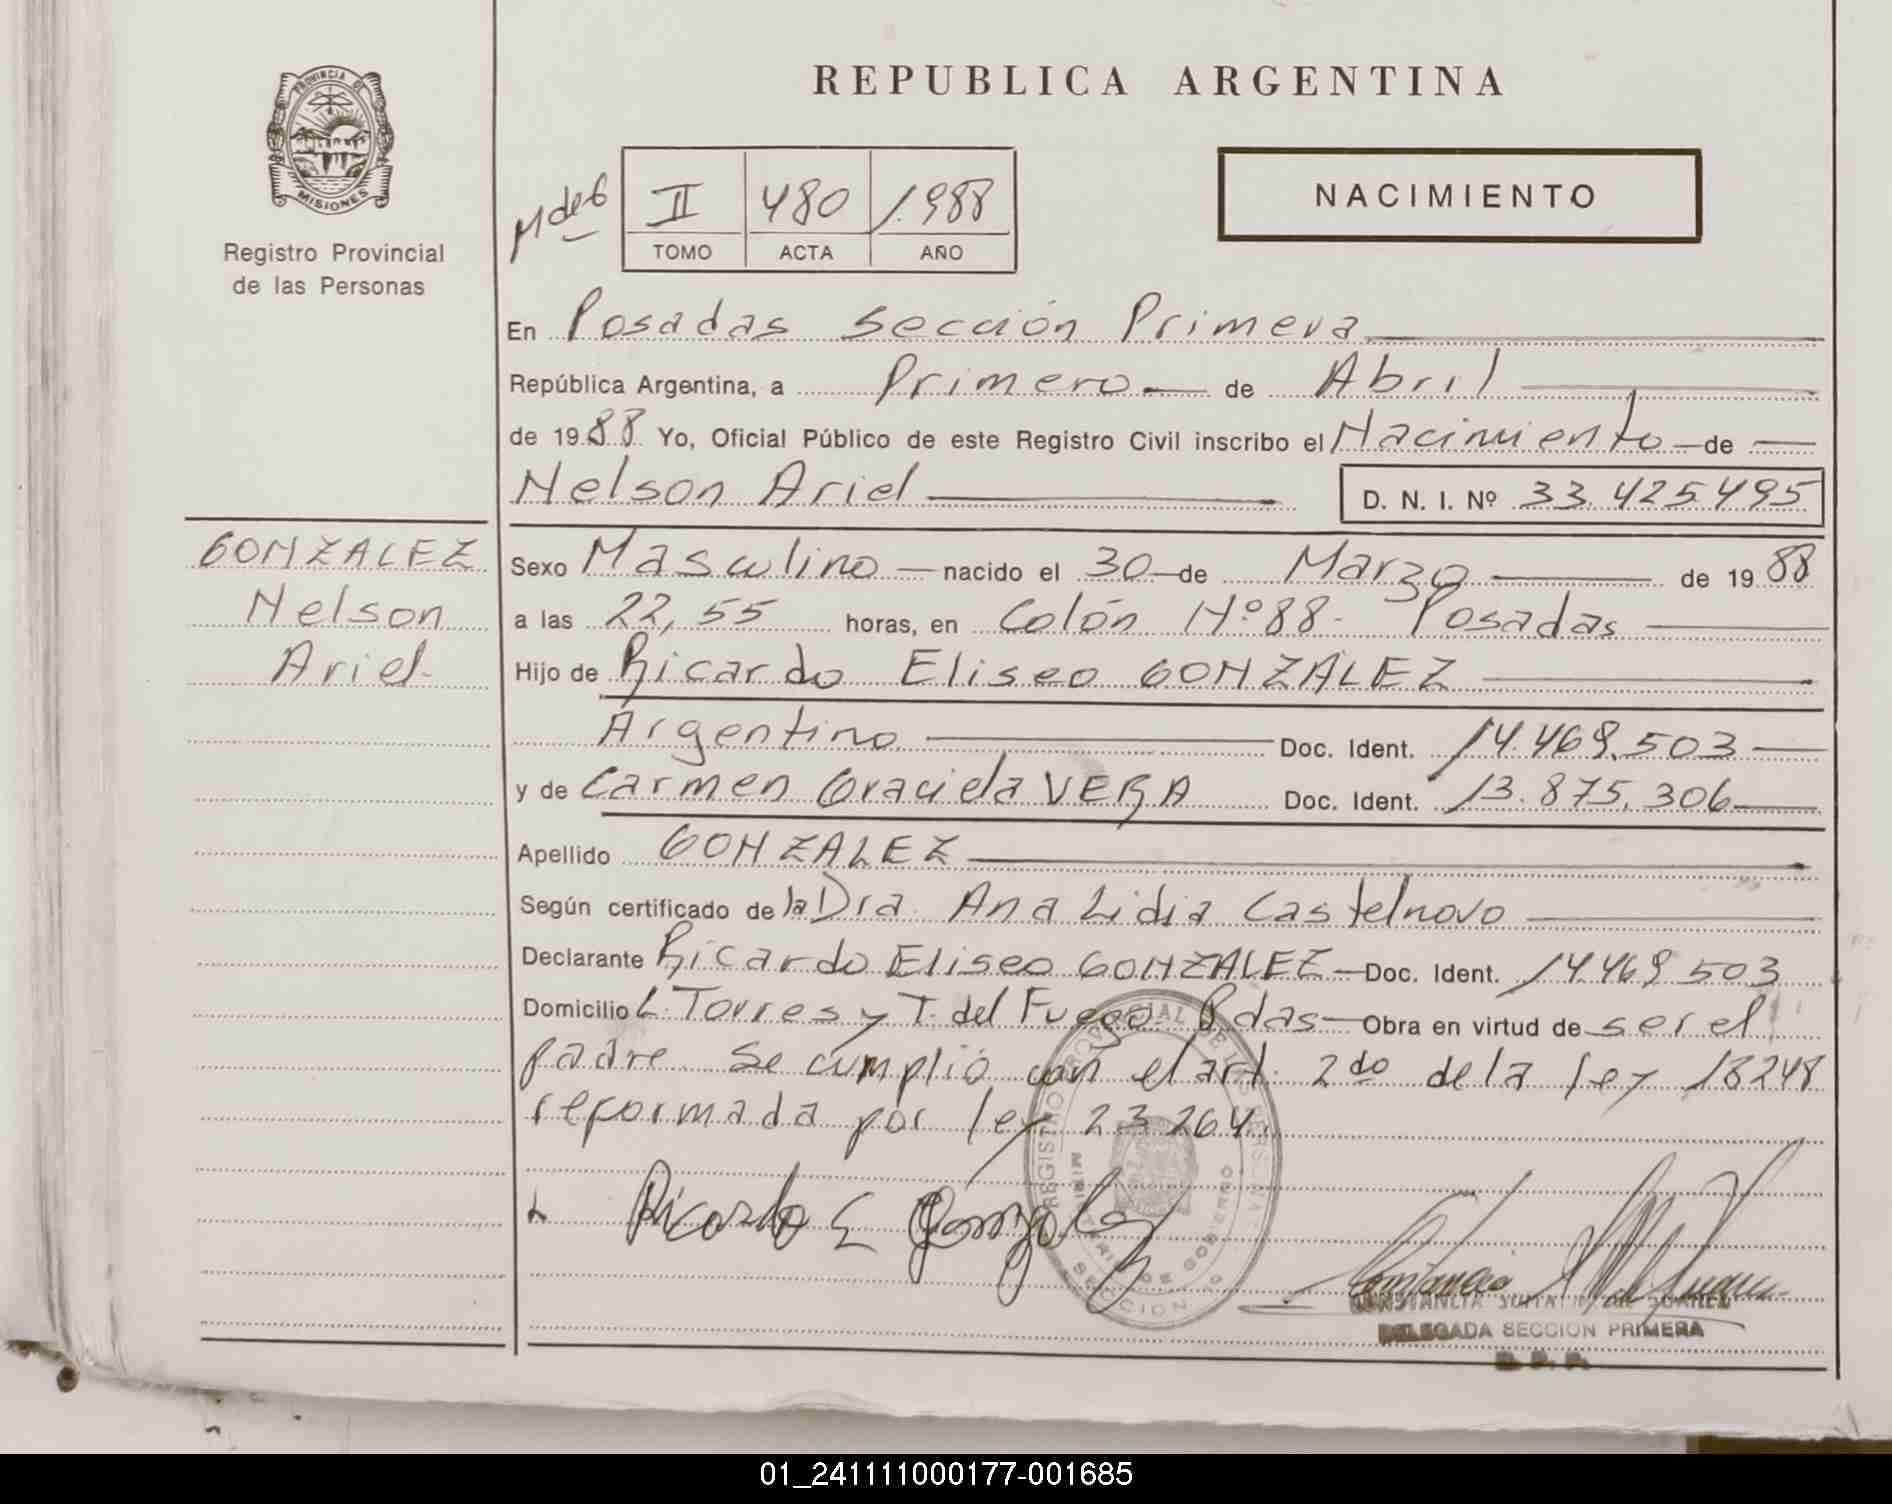 PROVINCIA DE
MISIONES
Registro Provincial
de las Personas
REPUBLICA ARGENTINA
NACIMIENTO
II 480 1.988
TOMO ACTA AÑO
En Posadas Sección Primera
República Argentina, a Primero de Abril
de 1988 Yo, Oficial Público de este Registro Civil inscribo el Nacimiento de
Nelson Ariel
D. N. I. Nº 33.425.495
GONZALEZ
Nelson
Ariel-
Sexo Masculino nacido el 30 de Marzo de 1988
a las 22,55 horas, en Colón Nº 88- Posadas
Hijo de Ricardo Eliseo GONZALEZ
Argentino Doc. Ident. 14.469.503
y de Carmen Graciela VERA Doc. Ident. 13.875.306
Apellido GONZALEZ
Según certificado de la Dra. Ana Lidia Castelnovo
Declarante Ricardo Eliseo GONZALEZ Doc. Ident. 14.469.503
Domicilio L. Torres y T. del Fuego. Pdas Obra en virtud de ser el
padre. Se cumplió con el art. 2do de la ley 18248
reformada por ley 23.264.
Ricardo E Gonzalez
REGISTRO PROVINCIAL DE LAS PERSONAS
MINISTERIO DE GOBIERNO
SECCION
DELEGADA SECCION PRIMERA
R. P. P.
01_241111000177-001685